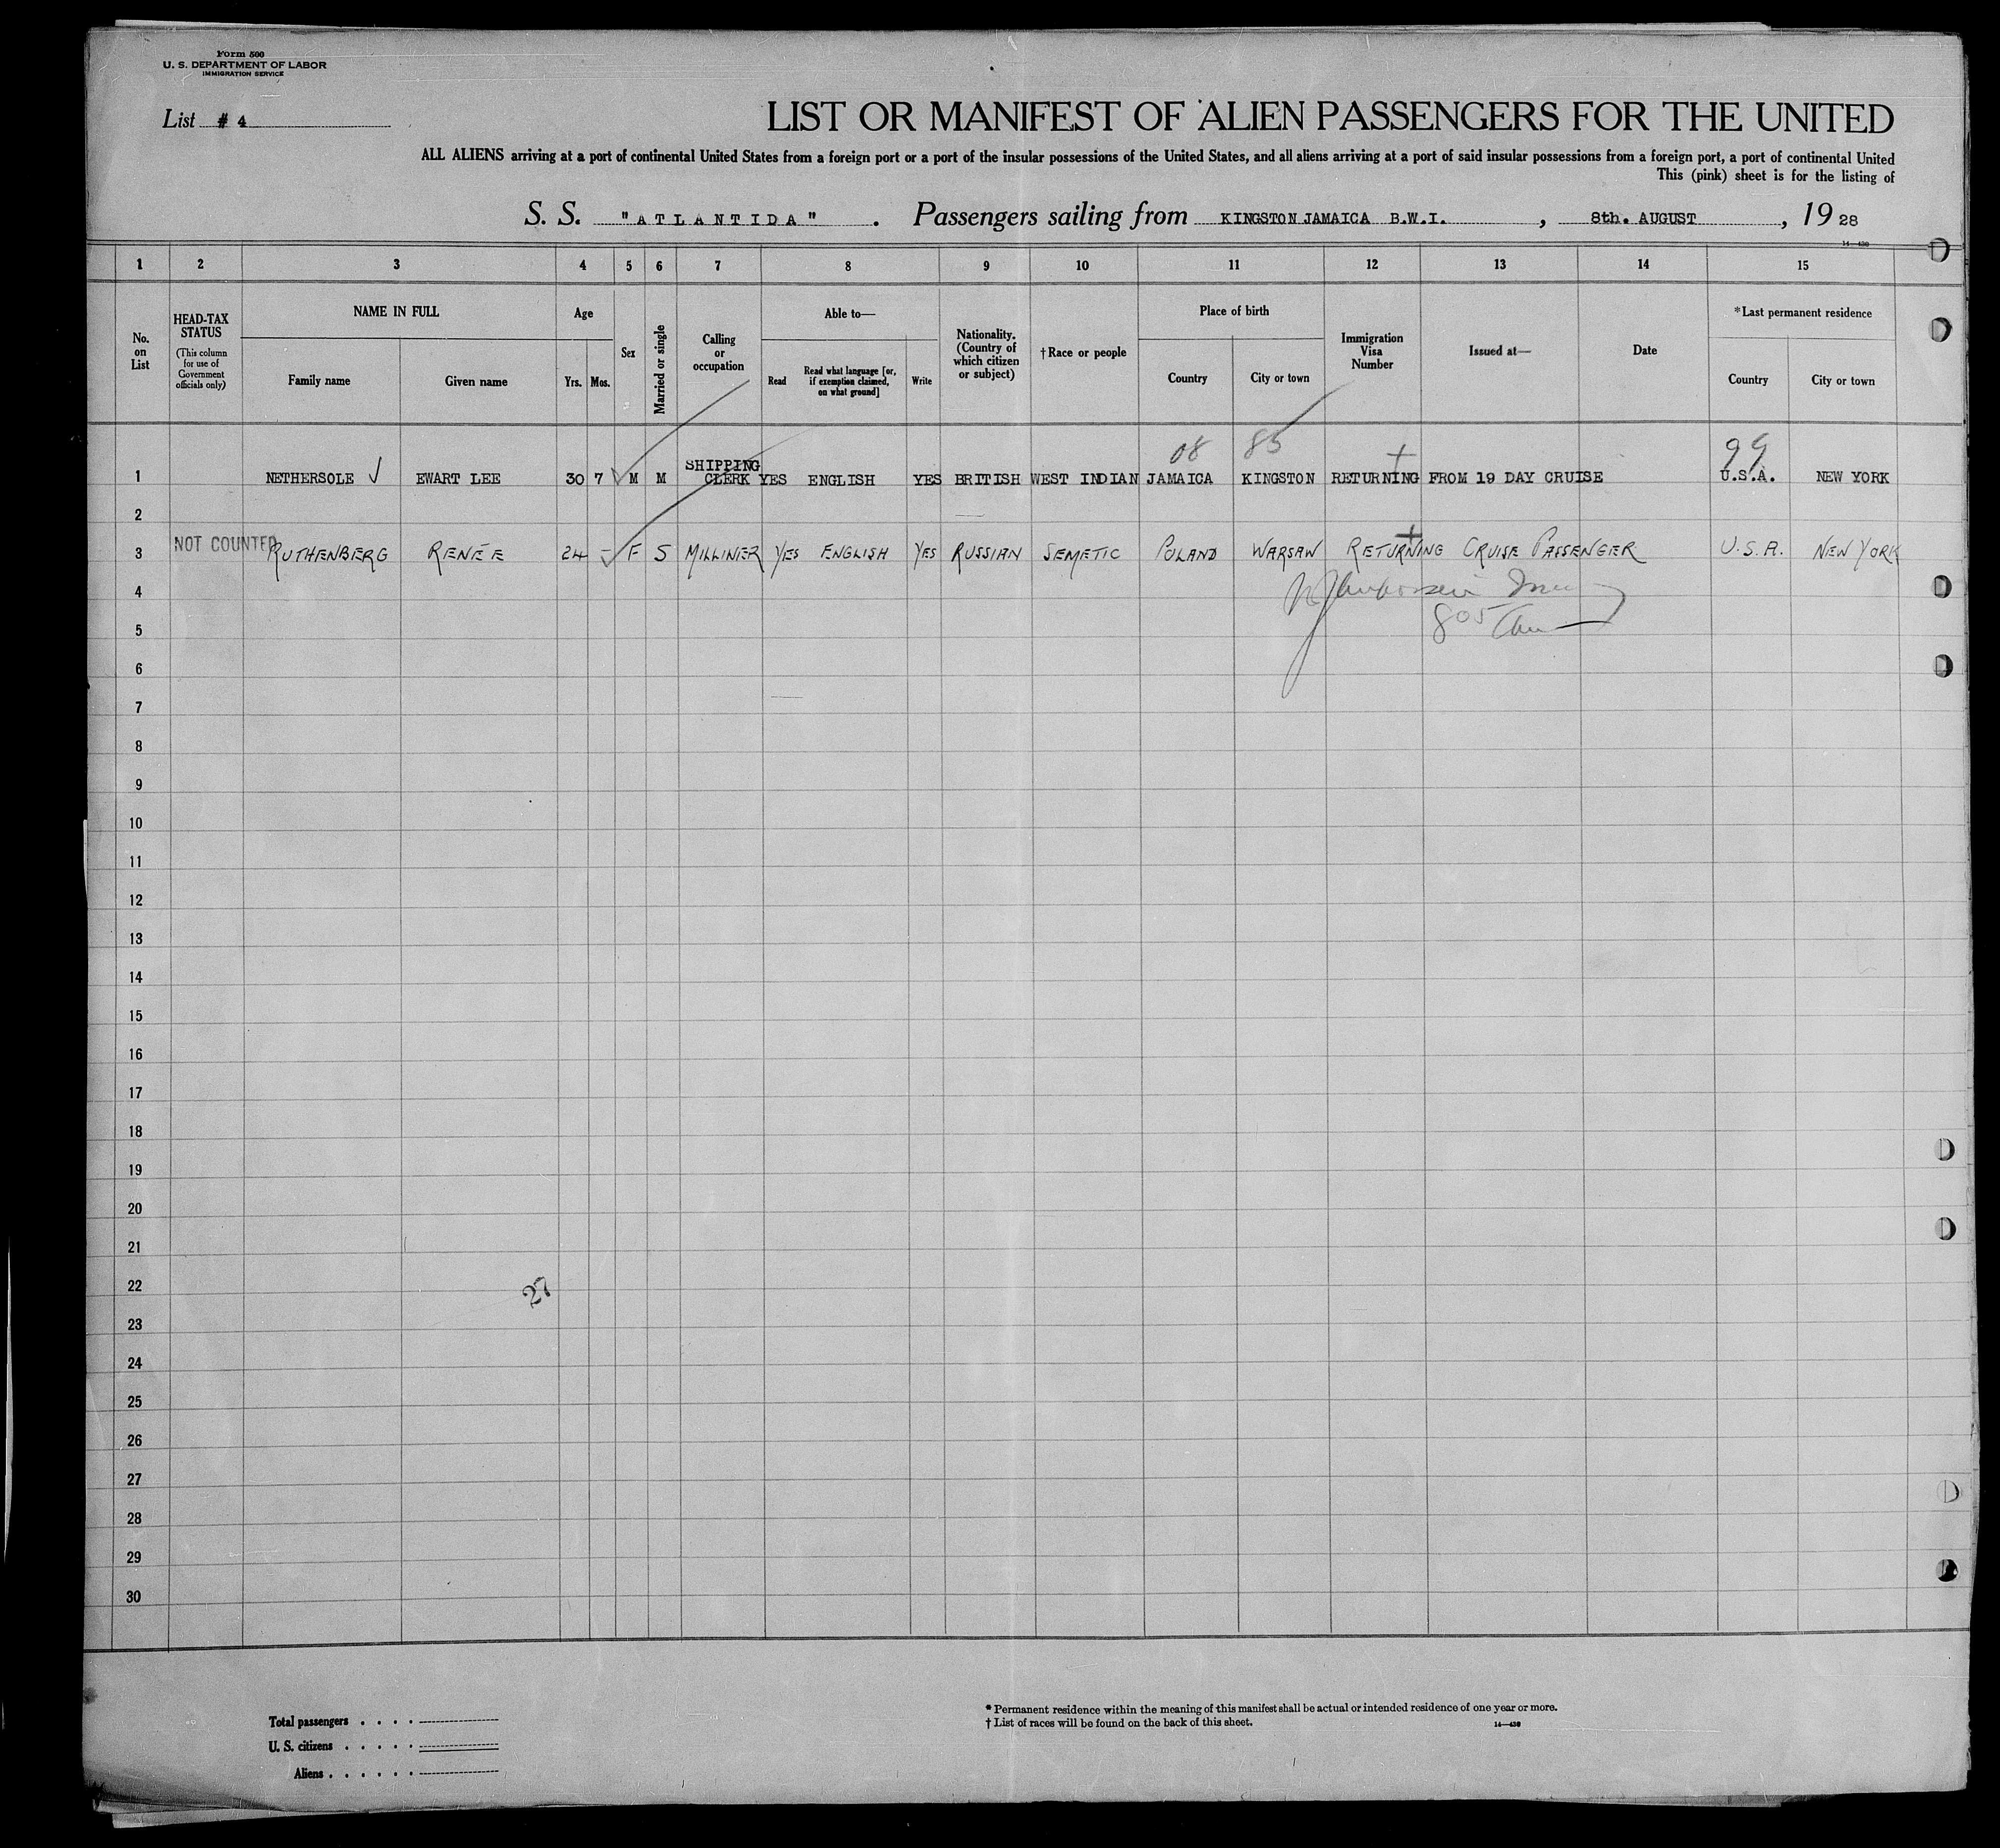 Form 500
U. S. DEPARTMENT OF LABOR
IMMIGRATION SERVICE
List # 4
LIST OR MANIFEST OF ALIEN PASSENGERS FOR THE UNITED
ALL ALIENS arriving at a port of continental United States from a foreign port or a port of the insular possessions of the United States, and all aliens arriving at a port of said insular possessions from a foreign port, a port of continental United
This (pink) sheet is for the listing of
S. S. "ATLANTIDA". Passengers sailing from KINGSTON JAMAICA B.W.I., 8th. AUGUST, 19 28
14—430
1 2 3 4 5 6 7 8 9 10 11 12 13 14 15
No. on List
HEAD-TAX STATUS
(This column for use of Government officials only)
NAME IN FULL
Family name Given name
Age
Yrs. Mos.
Sex
Married or single
Calling or occupation
Able to—
Read Read what language [or, if exemption claimed, on what ground] Write
Nationality. (Country of which citizen or subject)
† Race or people
Place of birth
Country City or town
Immigration Visa Number
Issued at—
Date
*Last permanent residence
Country City or town
08 85 99
1 NETHERSOLE EWART LEE 30 7 M M SHIPPING CLERK YES ENGLISH YES BRITISH WEST INDIAN JAMAICA KINGSTON RETURNING FROM 19 DAY CRUISE U.S.A. NEW YORK
2
3 NOT COUNTED RUTHENBERG RENÉE 24 - F S MILLINER YES ENGLISH YES RUSSIAN SEMETIC POLAND WARSAW RETURNING CRUISE PASSENGER U.S.A. NEW YORK
4
5 805
6
7
8
9
10
11
12
13
14
15
16
17
18
19
20
21
22 27
23
24
25
26
27
28
29
30
Total passengers . . . .
U. S. citizens . . . . .
Aliens . . . . . .
* Permanent residence within the meaning of this manifest shall be actual or intended residence of one year or more.
† List of races will be found on the back of this sheet. 14—430